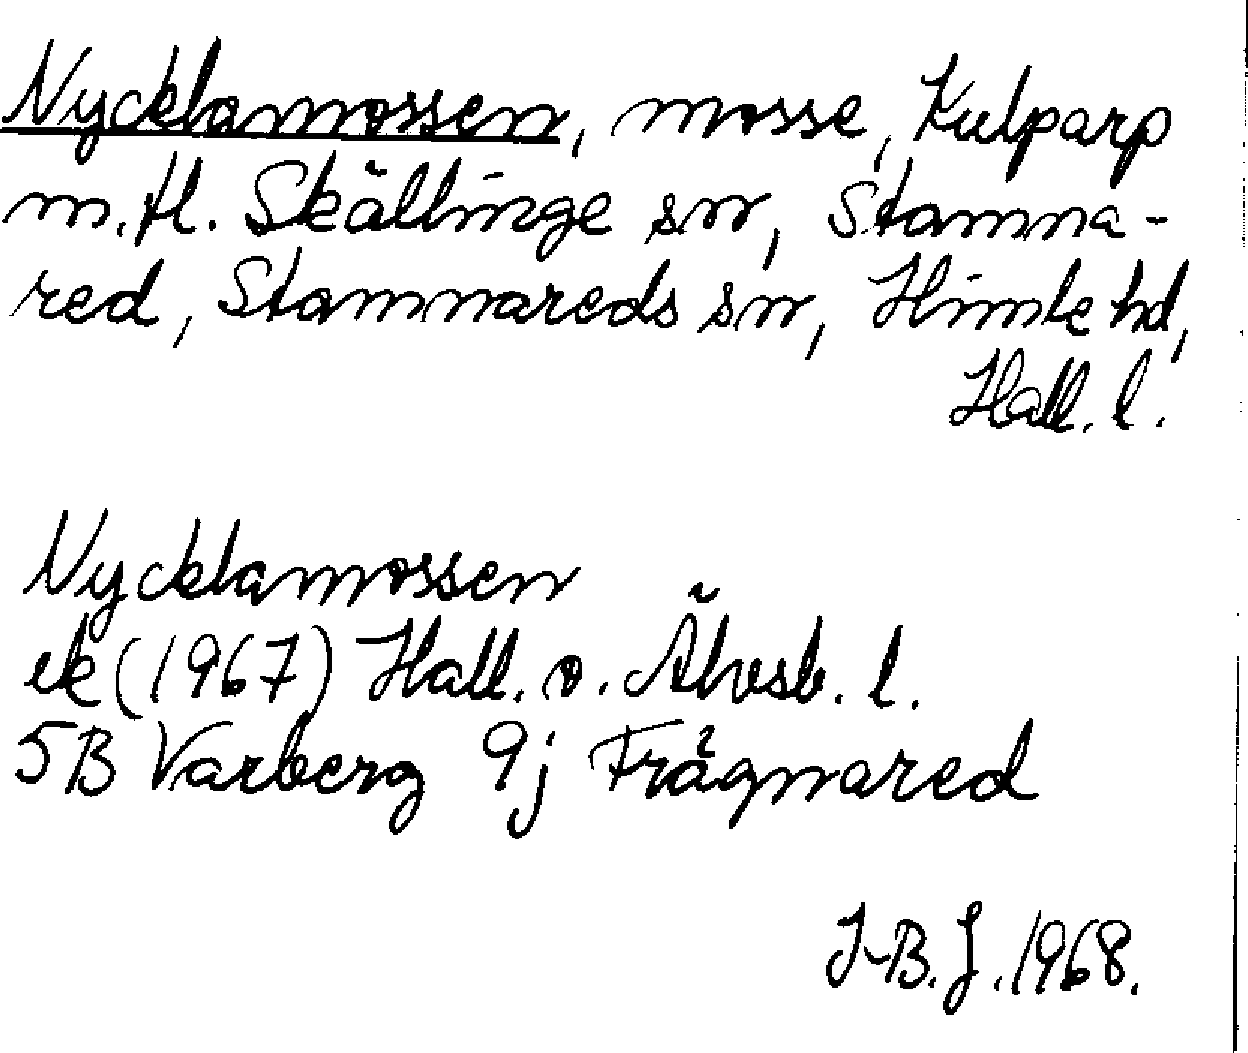 Nycklamossen, mosse, Kulparp
m.fl. Skällinge sn, Stamna-
red, Stamnareds sn, Himle hd,
Hall. l.
Nycklamossen
ek (1967) Hall. o. Älvsb. l.
5B Varberg 9j Frågnared
J-B. J. 1968.